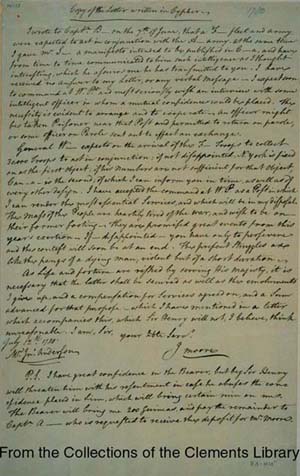 Copy of the Letter written in Cypher
I wrote to Captn B— on the 7th of June, that a F— fleet and army
were expected to act in conjunction with the A— army. at the same time
I gave Mr S— a manifesto intended to be published in C—a, and have
from time to time communicated to him such intelligence as I thought
interesting, which he assures me he has transmitted to you. I have
received no answer to my Letter, or any verbal Message — I expect soon
to command at W. Pt and most seriously wish an interview with some
intelligent officer in whom a mutual confidence could be placed. The
necessity is evident to arrange and to cooperate — An officer might
be taken Prisoner near that Post and permitted to return on parole,
or some officer on Parole sent out to effect an exchange.
General W— expects on the arrival of the F— Troops to collect
30,000 Troops to act in conjunction; if not disappointed, N. York is fixed
on as the first Object, if his numbers are not sufficient for that Object,
Can—a is the second; of which I can inform you in time, as well as of
every other design. I have accepted the command at W. P. as a Post in which
I can render the most essential Services, and which will be in my disposal.
The mass of the People are heartily tired of the war, and wish to be on
their former footing. They are promised great events from this
year's exertion. If disappointed you have only to persevere
and the contest will soon be at an end. The present Struggles are
like the pangs of a dying man, violent but of a short duration.—
As Life and fortune are risked by serving His Majesty, it is
necessary that the latter shall be secured as well as the emoluments
I give up, and a compensation for Services agreed on, and a Sum
advanced for that purpose — which I have mentioned in a letter
which accompanies this, which Sir Henry will not, I believe, think
unreasonable. I am, Sir,
your Hble Servt.
July 12th 1780.
J Moore
Mr Jno Anderson
P.S. I have great confidence in the Bearer, but beg Sir Henry
will threaten him with his resentment in case he abuses the con-
fidence placed in him, which will bring certain ruin on me.
The Bearer will bring me 200 Guineas, and pay the remainder to
Captn A— who is requested to receive the deposit for Mr Moore
From the Collections of the Clements Library